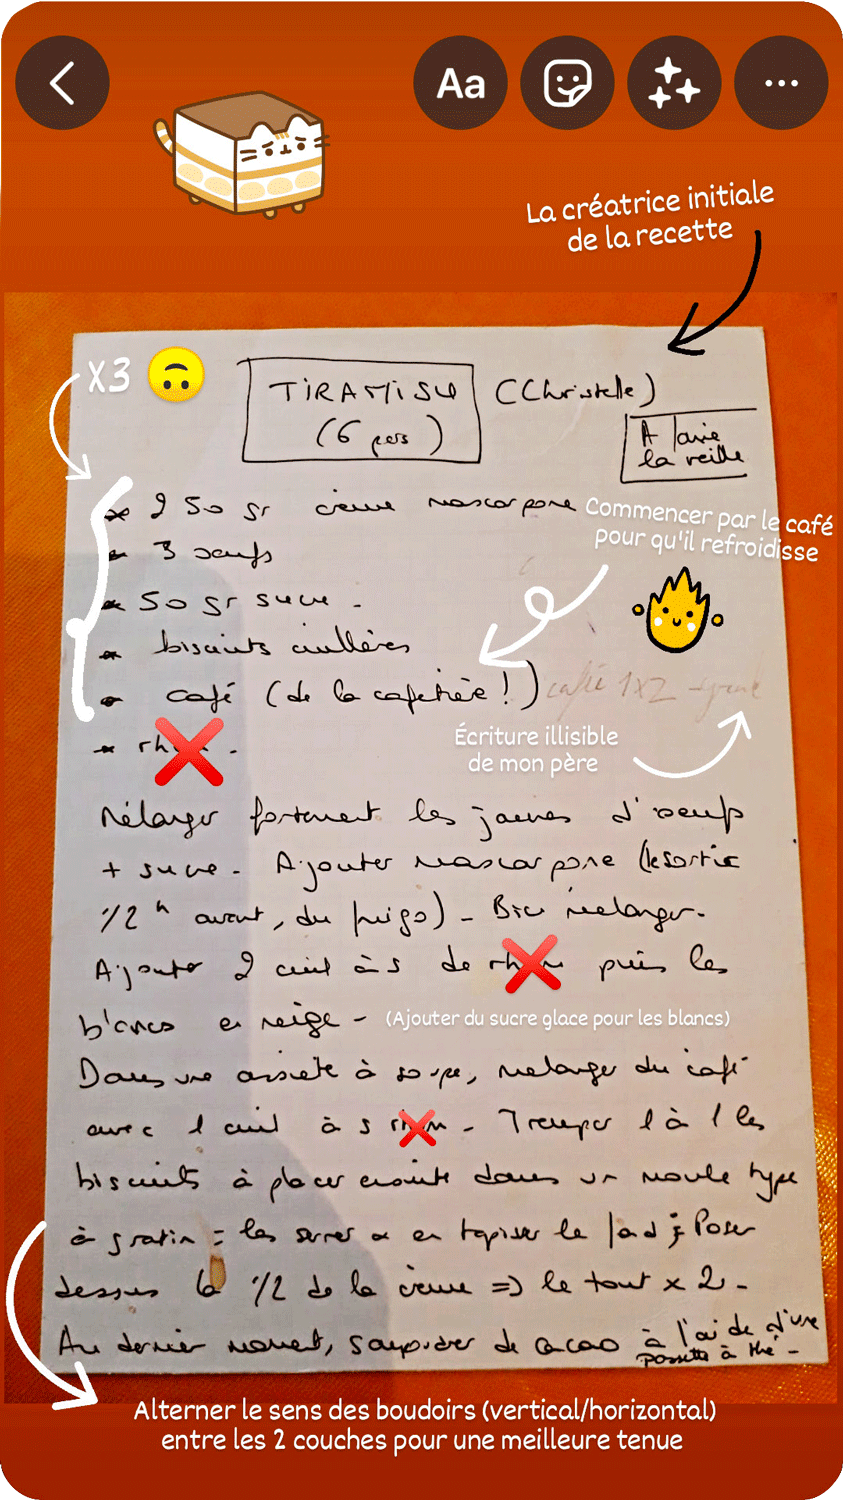 Aa
La créatrice initiale
de la recette
X3
TIRAMISU (Christelle)
(6 pers)
A faire
la veille
* 250 gr crème mascarpone
Commencer par le café
pour qu'il refroidisse
* 3 oeufs
* 50 gr sucre.
* biscuits cuillères
* café (de la cafetière !)
café 1x2
* rhum.
Écriture illisible
de mon père
Mélanger fortement les jaunes d'oeufs
+ sucre. Ajouter mascarpone (le sortir
1/2 h avant, du frigo) - Bien mélanger.
Ajouter 2 cuil à s de rhum puis les
blancs en neige -
(Ajouter du sucre glace pour les blancs)
Dans une assiette à soupe, mélanger du café
avec 1 cuil à s rhum. Tremper 1 à 1 les
biscuits à placer ensuite dans un moule type
à gratin = les serrer & en tapisser le fond ; Poser
dessus la 1/2 de la crème => le tout x 2 -
Au dernier moment, saupoudrer de cacao à l'aide d'une
passette à thé -
Alterner le sens des boudoirs (vertical/horizontal)
entre les 2 couches pour une meilleure tenue